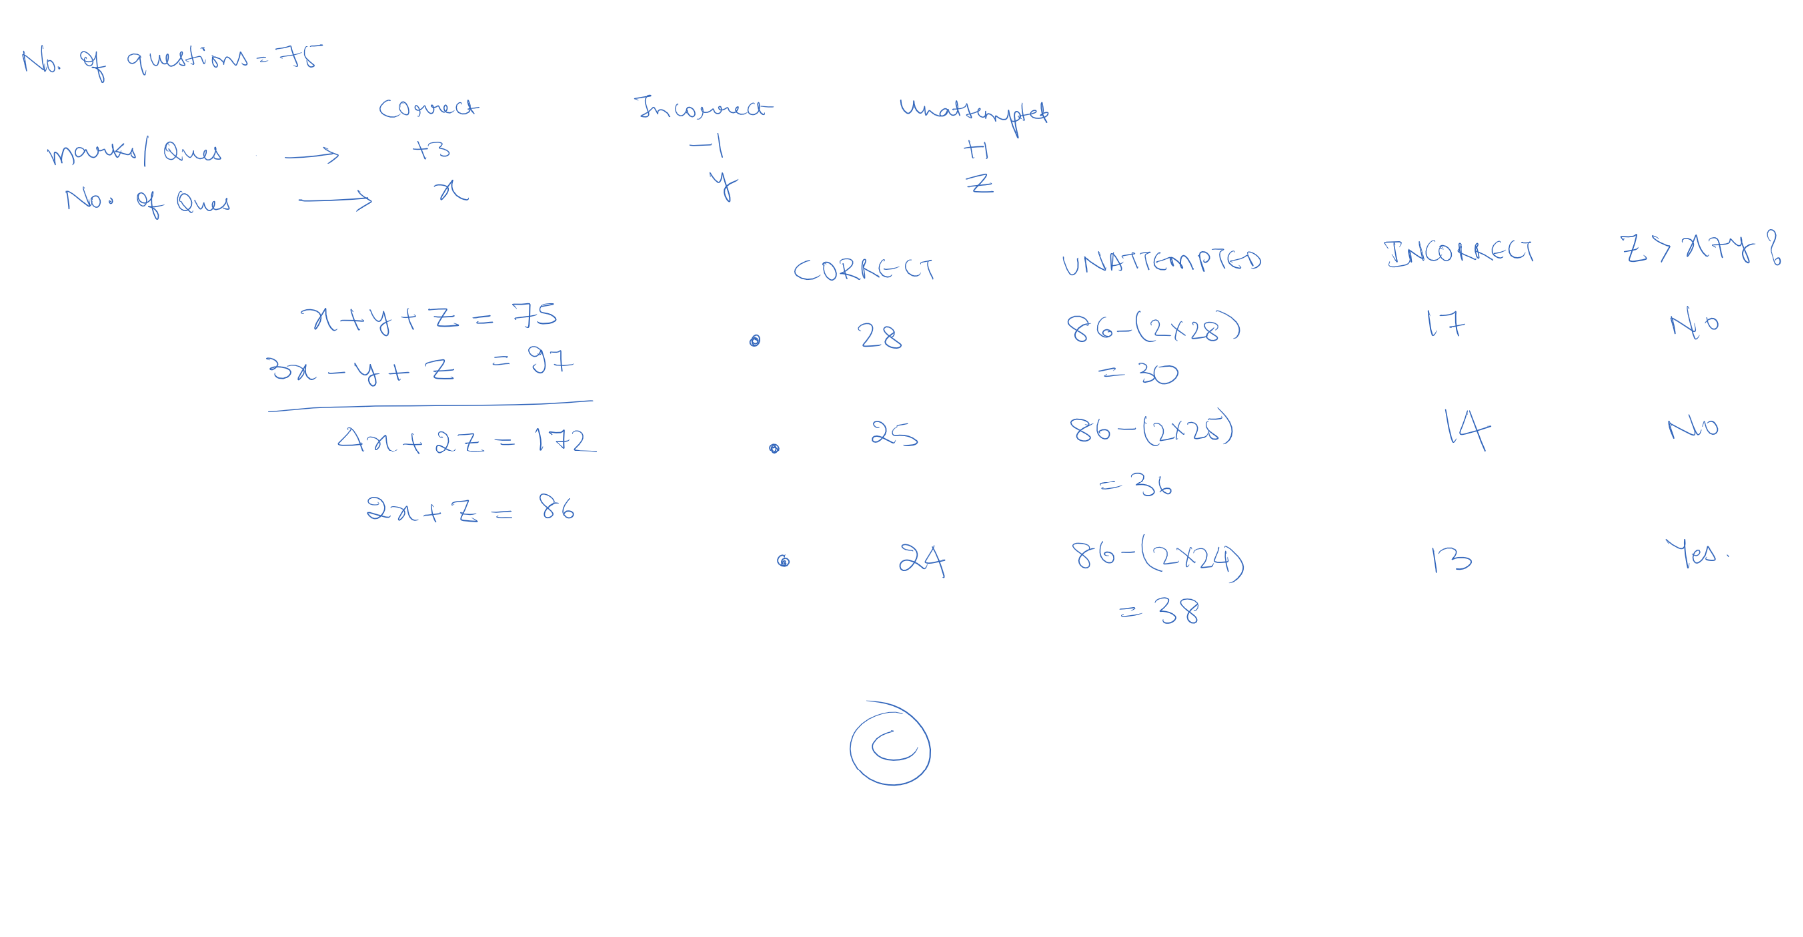 No. of questions = 75
Correct Incorrect Unattempted
Marks/Ques → +3 -1 +1
No. of Ques → x y z
CORRECT UNATTEMPTED INCORRECT Z > x+y ?
x+y+z = 75
3x-y+z = 97
4x+2z = 172
2x+z = 86
28 86-(2×28) 17 No
= 30
25 86-(2×25) 14 No
= 36
24 86-(2×24) 13 Yes.
= 38
C